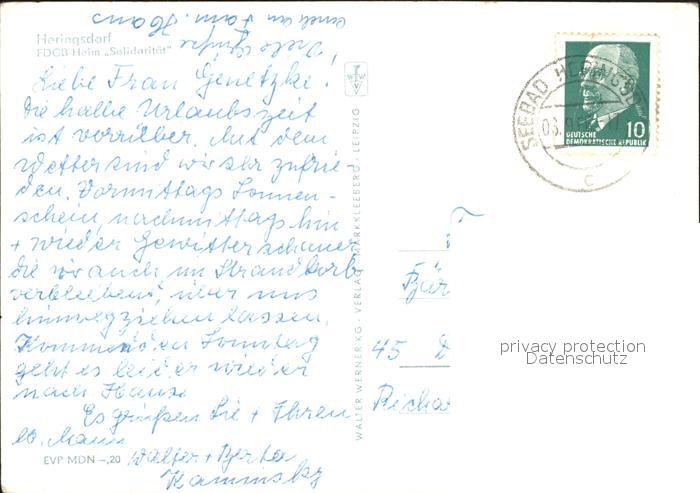 Heringsdorf
FDGB-Heim „Solidarität"
Viele Grüße
auch an Fam. Haas
Liebe Frau Genetzke!
Die halbe Urlaubszeit
ist vorüber. Mit dem
Wetter sind wir sehr zufrie-
den. Vormittags Sonnen-
schein, nachmittags hin
+ wieder Gewitterschauer
die wir auch im Strandkorb
verbleibend, über uns
hinwegziehen lassen.
Kommenden Sonntag
geht es leider wieder
nach Hause
Es grüßen Sie + Ihren
lb. Mann
Walter + Berta
Kaminsky
EVP MDN -,20
WALTER WERNER KG · VERLAG MARKKLEEBERG · LEIPZIG
SEEBAD HERINGSD
c
10
DEUTSCHE
DEMOKRATISCHE REPUBLIK
Für
45
Richa
privacy protection
Datenschutz